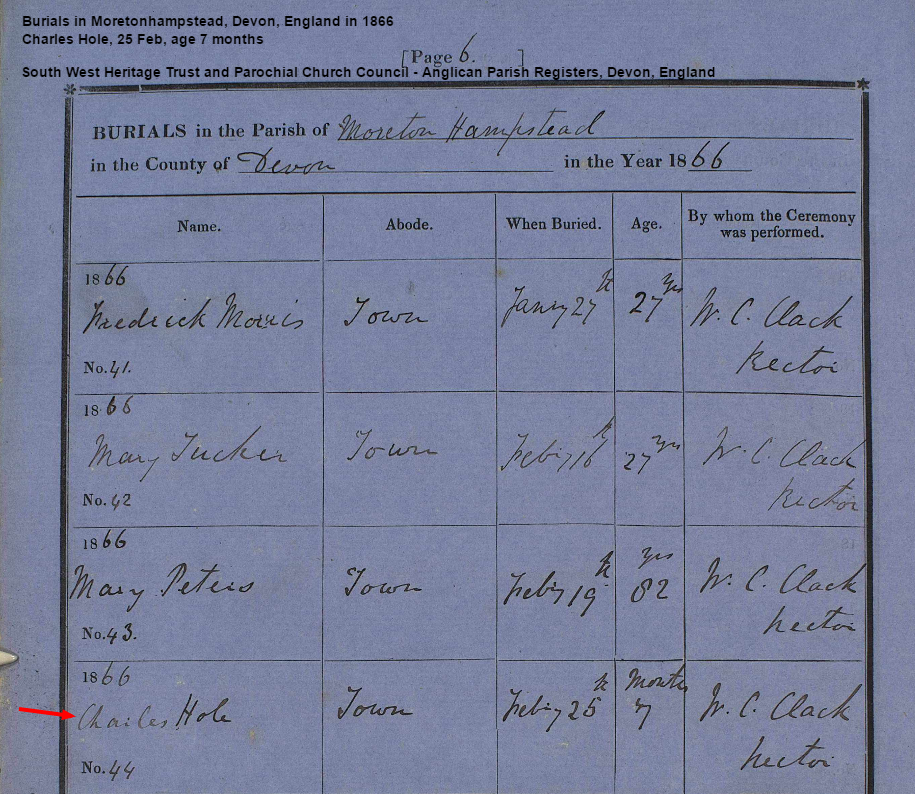 Burials in Moretonhampstead, Devon, England in 1866
Charles Hole, 25 Feb, age 7 months
[Page 6. ]
South West Heritage Trust and Parochial Church Council - Anglican Parish Registers, Devon, England
BURIALS in the Parish of Moreton Hampstead
in the County of Devon in the Year 1866
Name. Abode. When Buried. Age. By whom the Ceremony was performed.
1866
Fredrick Morris Town Janry 27th 27 yrs W. C. Clack
No. 41. Rector
1866
Mary Tucker Town Febry 16th 27 yrs W. C. Clack
No. 42 Rector
1866
Mary Peters Town Febry 19th 82 yrs W. C. Clack
No. 43. Rector
1866
Charles Hole Town Febry 25th 7 Months W. C. Clack
No. 44 Rector